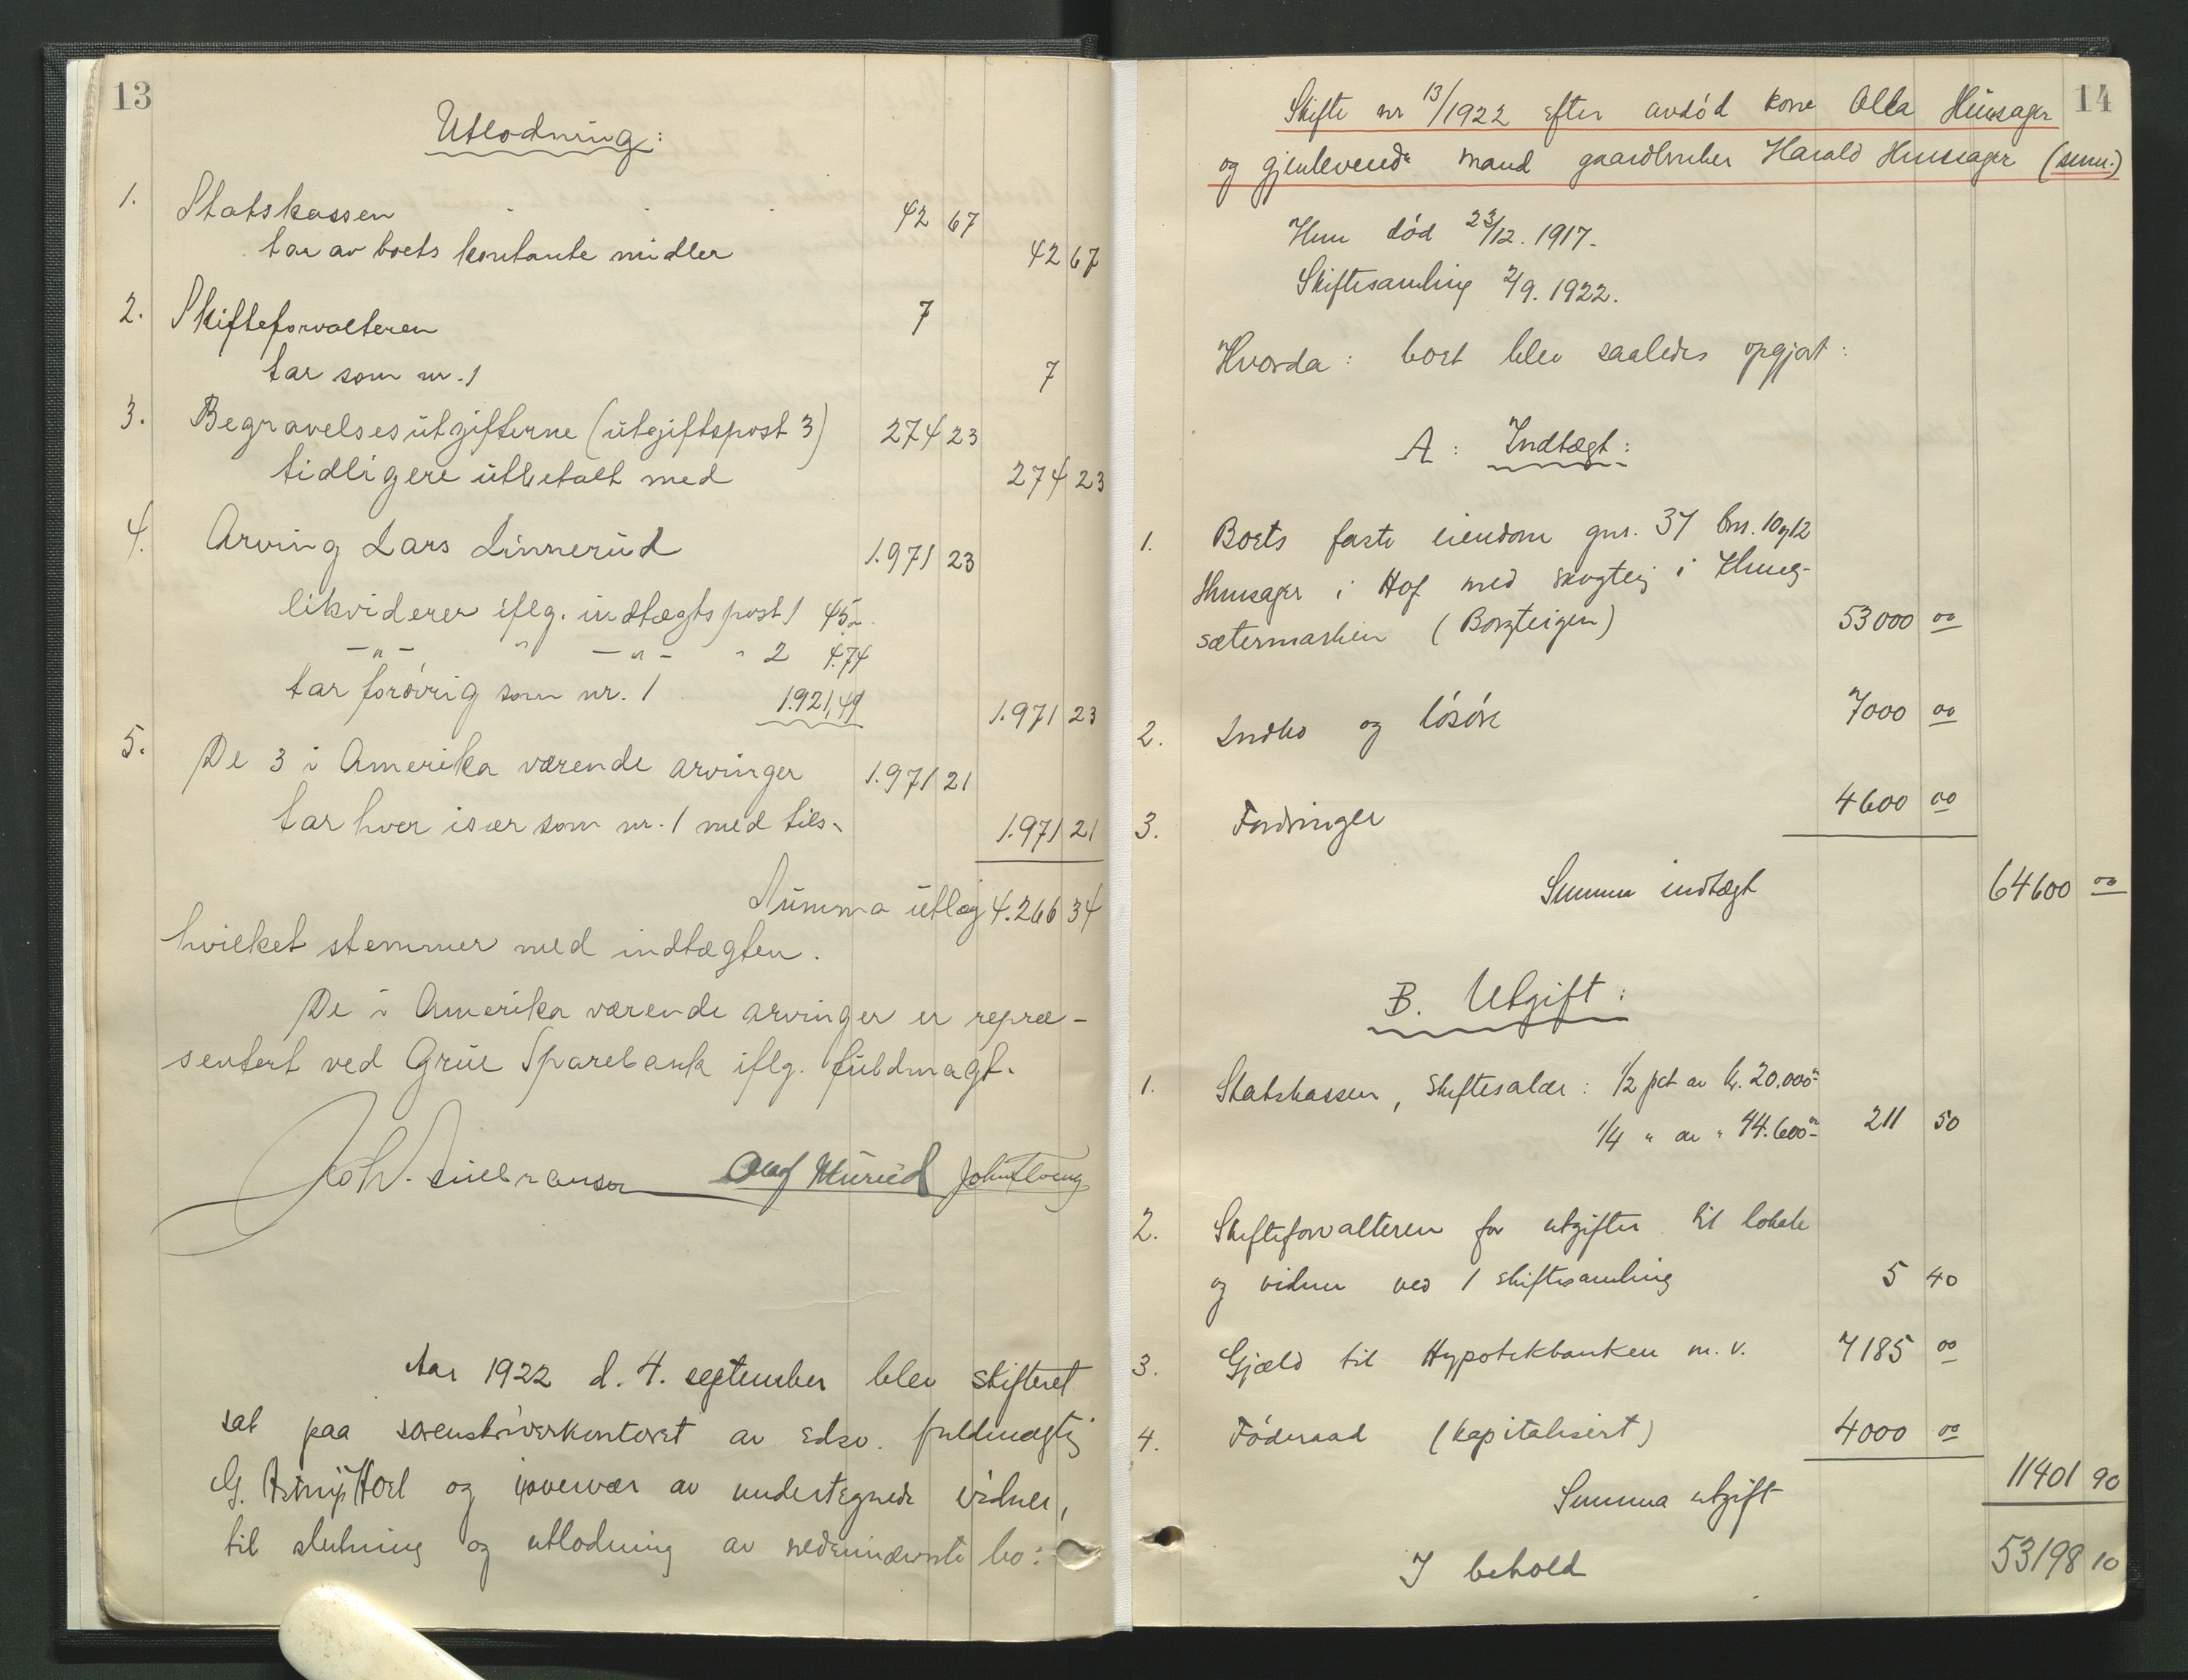 13
Utlodning:
1. Statskassen 42 67
tar av boets kontante midler 42 67
2. Skifteforvalteren 7
tar som nr. 1 7
3. Begravelsesutgifterne (utgiftspost 3) 274 23
tidligere utbetalt med 274 23
4. Arving Lars Linnerud 1.971 23
likviderer iflg. indtægts post 1 45,-
-"- " -"- " 2 4.74
tar forøvrig som nr. 1 1.921,49 1.971 23
5. De 3 i Amerika værende arvinger 1.971 21
tar hver især som nr. 1 med tils. 1.971 21
Summa utlæg 4.266 34
hvilket stemmer med indtægten.
De i Amerika værende arvinger er repræ-
sentert ved Grue Sparebank iflg. fuldmagt.
Olaf Murud
Aar 1922 d. 4. september blev skifteret
sat paa sorenskriverkontoret av edsv. fuldmægtig
G. Hoel og i overvær av undertegnede vidner,
til slutning og utlodning av nedennævnte bo:
14
Skifte nr 13/1922 efter avdød kone Olea Hunsager
og gjenlevende mand gaardbruker Harald Hunsager (senr.)
Hun død 23/12. 1917.
Skiftesamling 2/9. 1922.
Hvorda: boet blev saaledes opgjort:
A: Indtægt:
1. Boets faste eiendom gnr. 37 bnr. 10 og 12
Hunsager i Hof med skogteig i
sætermarken 53000 00
2. Indbo og løsøre 7000 00
3. Fordringer 4600 00
Summa indtægt 64600 00
B. Utgift:
1. Statskassen, skiftesalær: 1/2 pct av kr. 20.000 00
1/4 " av " 44.600 00 211 50
2. Skifteforvalteren for utgifter til lokale
og vidner ved 1 skiftesamling 5 40
3. Gjæld til Hypotekbanken m. v. 7185 00
4. Føderaad (kapitalisert) 4000 00
Summa utgift 11401 90
I behold 53198 10